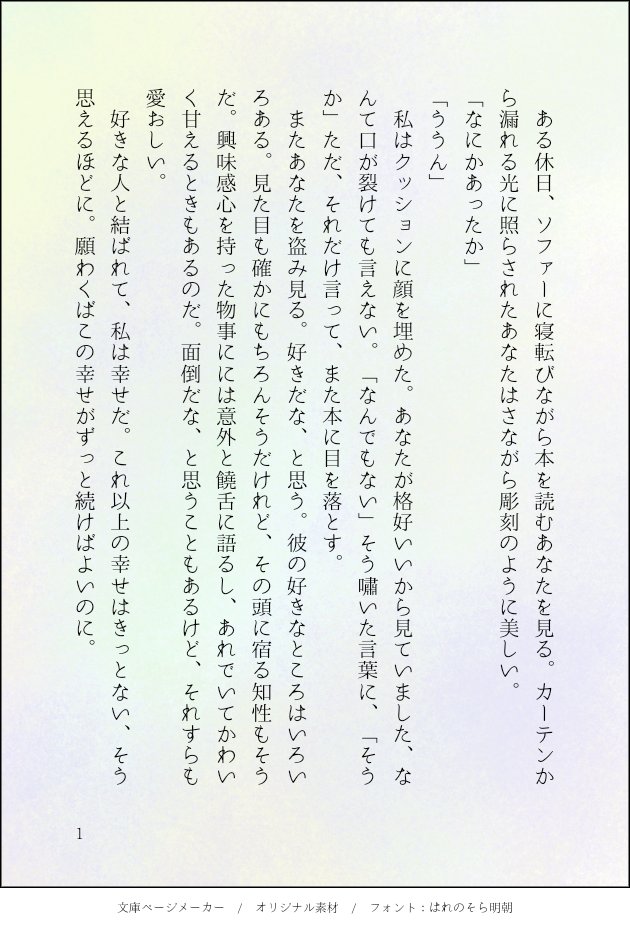 ある休日、ソファーに寝転びながら本を読むあなたを見る。カーテンか
ら漏れる光に照らされたあなたはさながら彫刻のように美しい。
「なにかあったか」
「ううん」
　私はクッションに顔を埋めた。あなたが格好いいから見ていました、な
んて口が裂けても言えない。「なんでもない」そう嘯いた言葉に、「そう
か」ただ、それだけ言って、また本に目を落とす。
　またあなたを盗み見る。好きだな、と思う。彼の好きなところはいろい
ろある。見た目も確かにもちろんそうだけれど、その頭に宿る知性もそう
だ。興味感心を持った物事にには意外と饒舌に語るし、あれでいてかわい
く甘えるときもあるのだ。面倒だな、と思うこともあるけど、それすらも
愛おしい。
　好きな人と結ばれて、私は幸せだ。これ以上の幸せはきっとない、そう
思えるほどに。願わくばこの幸せがずっと続けばよいのに。
1
文庫ページメーカー　/　オリジナル素材　/　フォント：はれのそら明朝